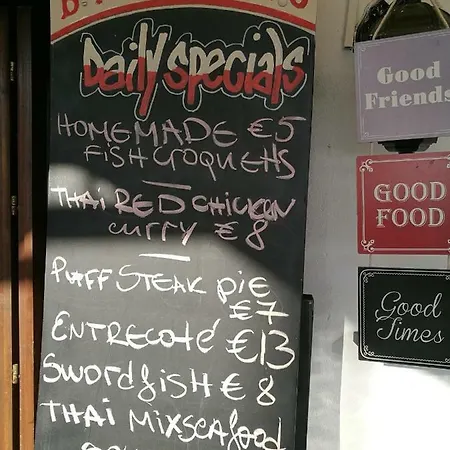 Daily Specials
HOMEMADE €5
FISH CROQUETTS
THAI RED CHICKEN
CURRY €8
PUFF STEAK PIE
€7
ENTRECOTÉ €13
SWORDFISH €8
THAI MIXSEAFOOD
Good
Friends
GOOD
FOOD
Good
Times